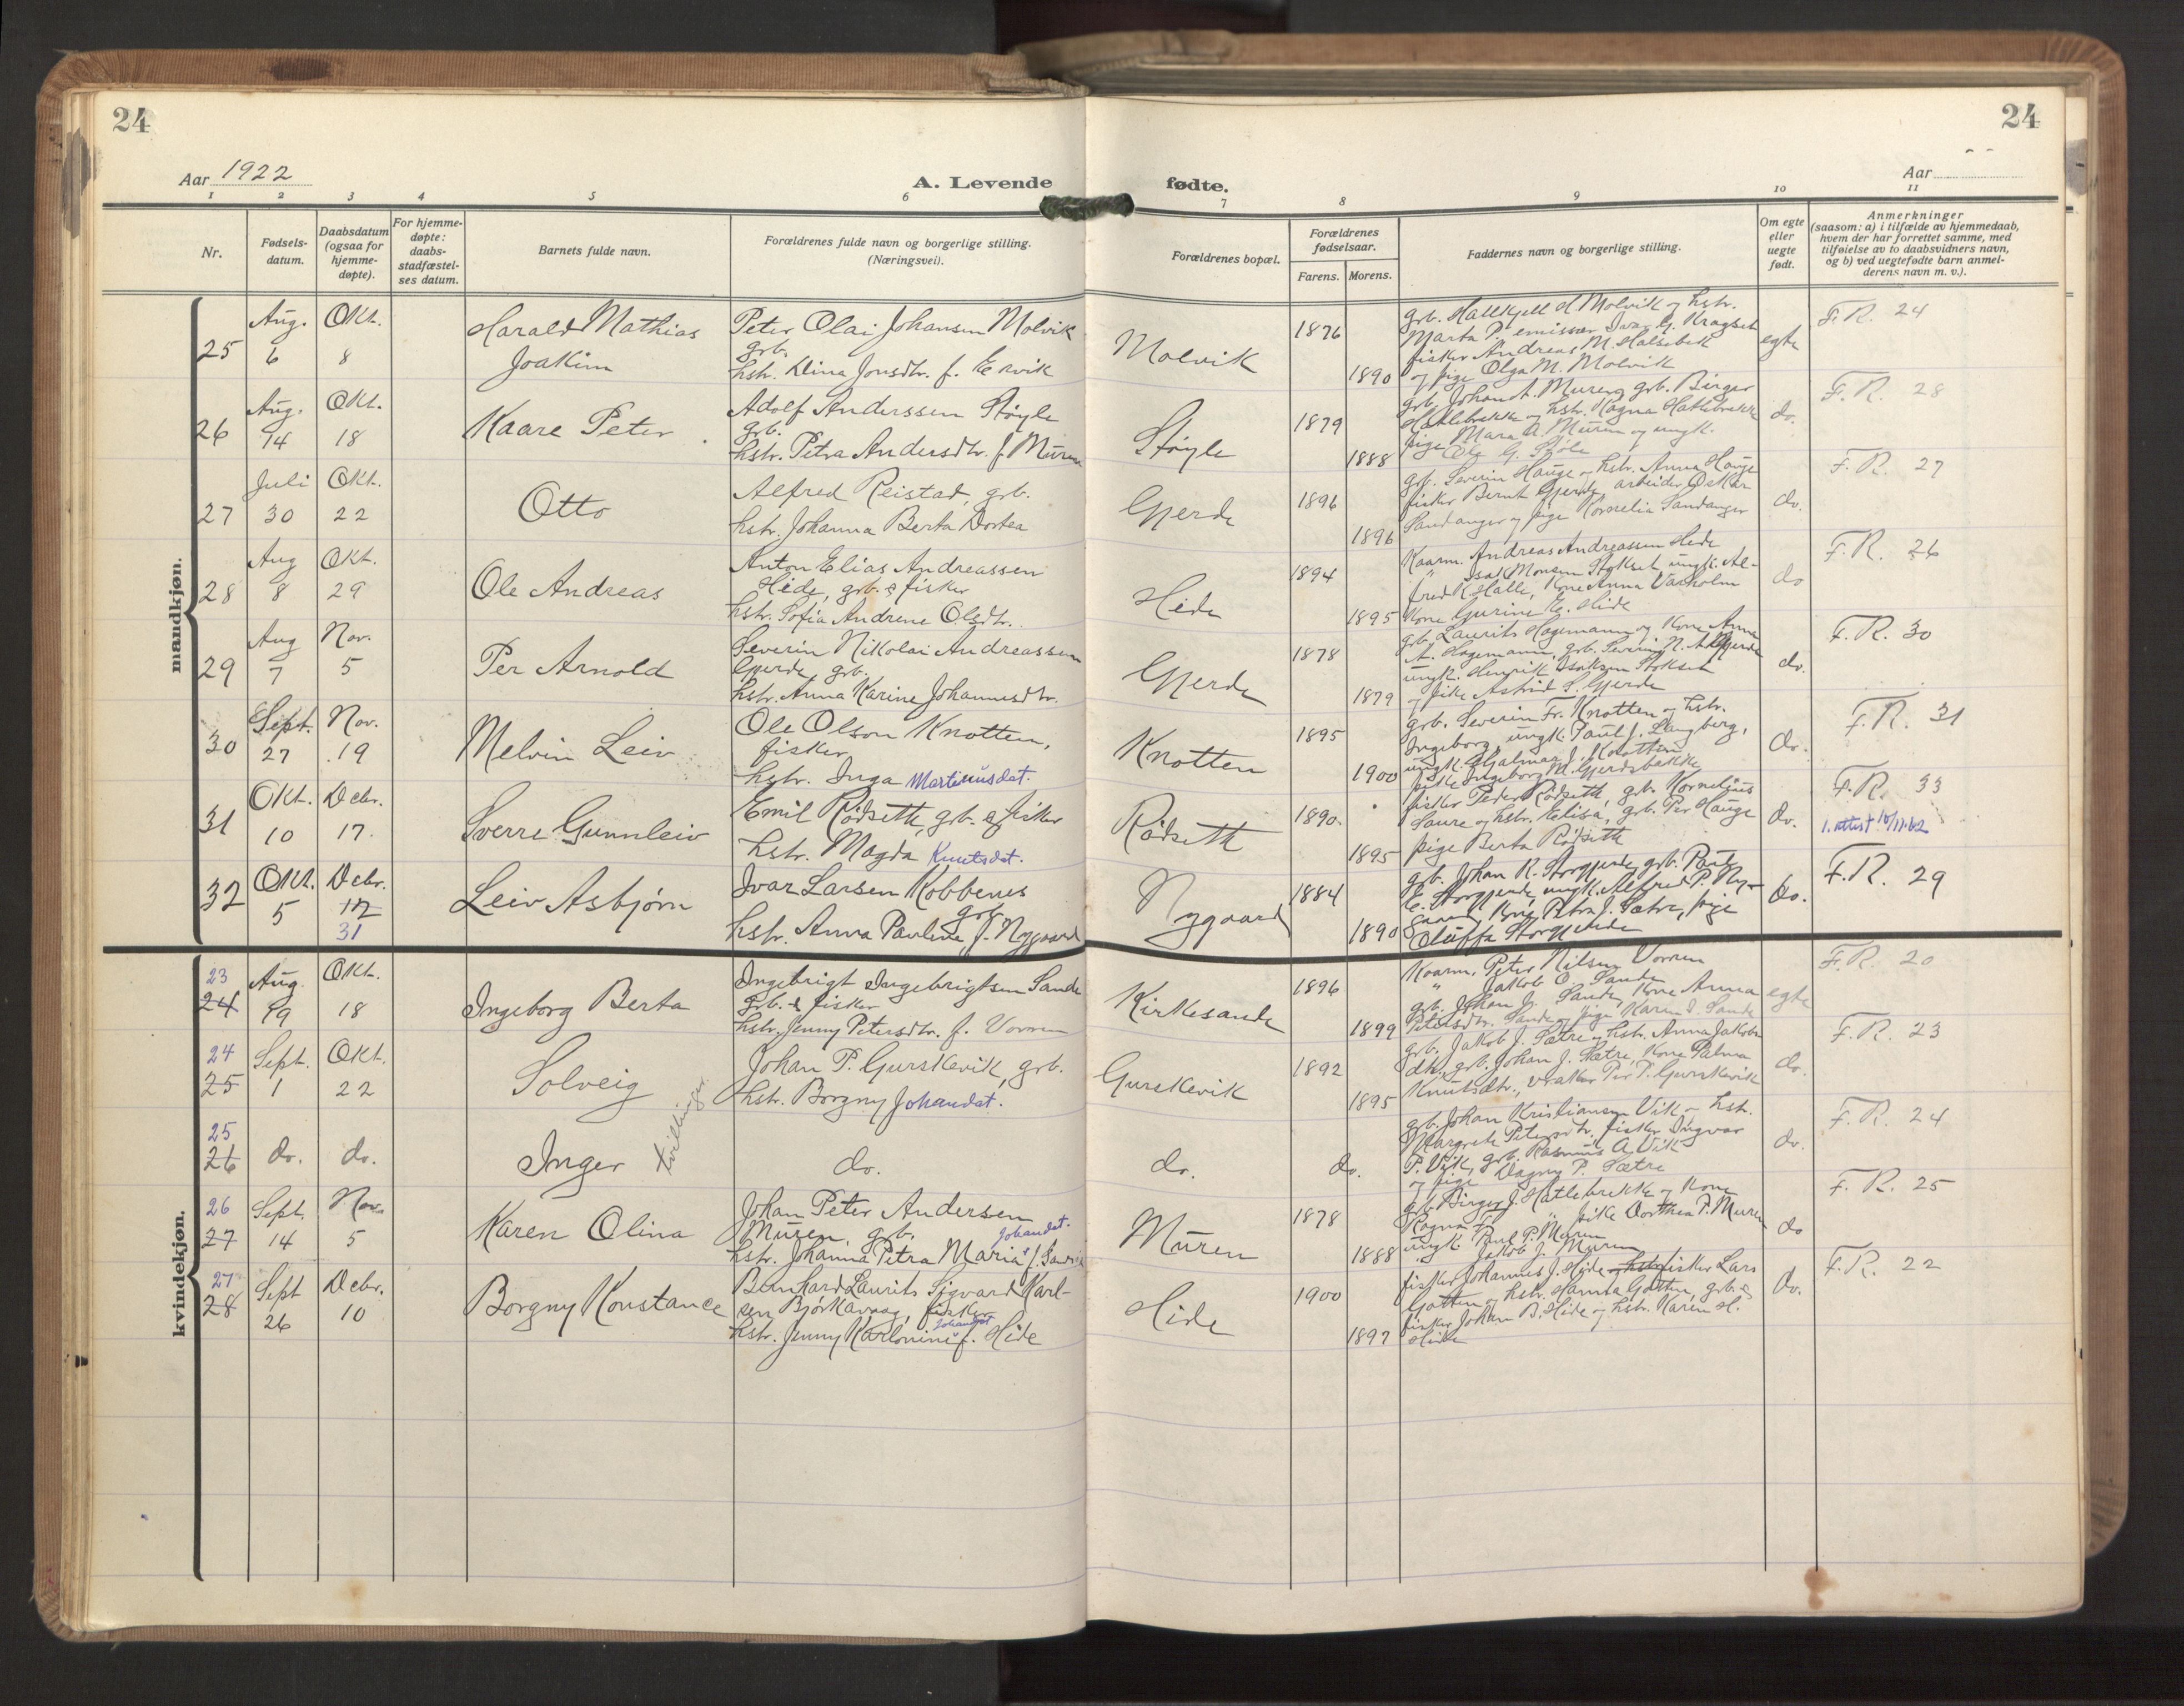 24
24
Aar 1922
A. Levende
fødte.
Aar
1 2 3 4 5 6 7 8 9 10 11
Nr.
Fødsels-
datum.
Daabsdatum
(ogsaa for
hjemme-
døpte).
For hjemme-
døpte:
daabs-
stadfæstel-
ses datum.
Barnets fulde navn.
Forældrenes fulde navn og borgerlige stilling.
(Næringsvei).
Forældrenes bopæl.
Forældrenes
fødselsaar.
Farens. Morens.
Faddernes navn og borgerlige stilling.
Om egte
eller
uegte
født.
Anmerkninger
(saasom: a) i tilfælde av hjemmedaab,
hvem der har forrettet samme, med
tilføielse av to daabsvidners navn,
og b) ved uegtefødte barn anmel-
derens navn m. v.).
mandkjøn.
25
Aug.
6
Okt.
8
Harald Mathias
Joakim
Peter Olai Johansen Molvik
grb.
hstr. Dina Jonsdtr. f. Ervik
Molvik
1876
1890
grb. Hallkjell H. Molvik og hstr.
Marta P. emissær Ivar G. Kragset
fisker Andreas M. Halsebek
og pige Olga M. Molvik
egte
F.R. 24
26
Aug.
14
Okt.
18
Kaare Peter
Adolf Anderssen Støyle
grb.
hstr. Petra Andersdtr. f. Muren
Støyle
1879
1888
grb. Johan A. Muren, grb. Birger
Hatlebrekke og hstr. Ragna Hatlebrekke
pige Mara A. Muren og ungk.
Ole G.
do.
F.R. 28
27
Juli
30
Okt.
22
Otto
Alfred Reistad, grb.
hstr. Johanna Berta Dortea
Gjerde
1896
1896
grb. Severin Hauge og hstr. Anna Hauge
fisker Bernt Gjerde, arbeider Oskar
Sandanger og pige Kornelia Sandanger
do.
F.R. 27
28
Aug
8
Okt.
29
Ole Andreas
Anton Elias Andreassen
Hide, grb. & fisker
hstr. Sofia Andrene Olsdtr.
Hide
1894
1895
Kaarm. Andreas Andreassen Hide
" Isak Monsen Stokset, ungk. Al-
fred K. Halle, Kone Anna Vaxholm
Kone Gurine E. Hide
do
F.R. 26
29
Aug
7
Nov.
5
Per Arnold
Severin Nikolai Andreassen
Gjerde, grb.
hstr. Anna Karine Johannesdtr.
Gjerde
1878
1879
grb. Laurits Hagemann og Kone Anna
A. Hagemann, grb. Severin N. A. Gjerde
ungk. Henrik Isaksen Stokset
og pike Astrid S. Gjerde
do.
F.R. 30
30
Sept.
27
Nov.
19
Melvin Leiv
Ole Olson Knotten,
fisker
hstr. Inga Martinusdat.
Knotten
1895
1900
grb. Severin Fr. Knotten og hstr.
Ingeborg, ungk. Paul J. Langberg,
ungk. Hjalmar J. Knotten
pike Ingeborg M. Gjerdsbakke
do.
F.R. 31
31
Okt.
10
Debr.
17.
Sverre Gunnleiv
Emil Rødseth, grb. & fisker
hstr. Magda Knutsdat.
Rødseth
1890.
1895
fisker Peder Rødseth, grb. Kornelius
Saure og hstr. Elisa, grb. Per Hauge
pige Berta Rødseth
do.
F.R. 33
1. attest 10/11.62
32
Okt.
5
Debr.
17
31
Leiv Asbjørn
Ivar Larsen Kobbenes
grb.
hstr. Anna Pauline f. Nygaard
Nygaard
1884
1890
grb. Johan R. Storgjerde, grb. Paul
E. Storgjerde, ungk. Alfred P. Ny-
gaard, Kone Petra J. Sætre, pige
Oluffa Storgjerde
do.
F.R. 29
kvindekjøn.
23
24
Aug.
19
Okt.
18
Ingeborg Berta
Ingebrigt Ingebrigtsen Sande
grb. & fisker
hstr. Jenny Petersdtr. f. Vorren
Kirkesande
1896
1899
Kaarm. Peter Nilsen Vorren
" Jakob O. Sande
grb. Johan J. Sande, Kone Anna
Petersdtr. Sande og pige Karen I. Sande
egte
F.R. 20
24
25
Sept.
1
Okt.
22
Solveig
tvillinger
Johan P. Gurskevik, grb.
hstr. Borgny Johandat.
Gurskevik
1892
1895
grb. Jakob J. Sætre og hstr. Anna Jakobs
dtr., grb. Johan J. Sætre, Kone Palma
Knutsdtr., vraker Per P. Gurskevik
do.
F.R. 23
25
26
do.
do.
Inger
do.
do.
do.
grb. Johan Kristiansen Vik og hstr.
Margrete Petersdtr. fisker Ingvar
P. Vik, grb. Rasmus A. Vik
og pige Dagny P. Sætre
do.
F.R. 24
26
27
Sept.
14
Nov.
5
Karen Olina
Johan Peter Andersen
Muren, grb. Johandat.
hstr. Johanna Petra Maria f.
Muren
1878
1888
grb. Birger J. Hatlebrekke og Kone
Ragna Fr. " pike Dorthea P. Muren
ungk. Paul P. Muren
" Jakob J. Muren
do
F.R. 25
27
28
Sept
26
Debr.
10
Borgny Konstance
Bernhard Laurits Sigvard Karl-
sen Bjørkavaag, fisker
Johandat
hstr. Jenny Karlonine f. Hide
Hide
1900
1897
fisker Johannes J. Hide og hstr fisker Lars
Gotten og hstr. Hanna Gotten, grb. &
fisker Johan B. Hide og hstr. Karen H.
Hide
do.
F.R. 22